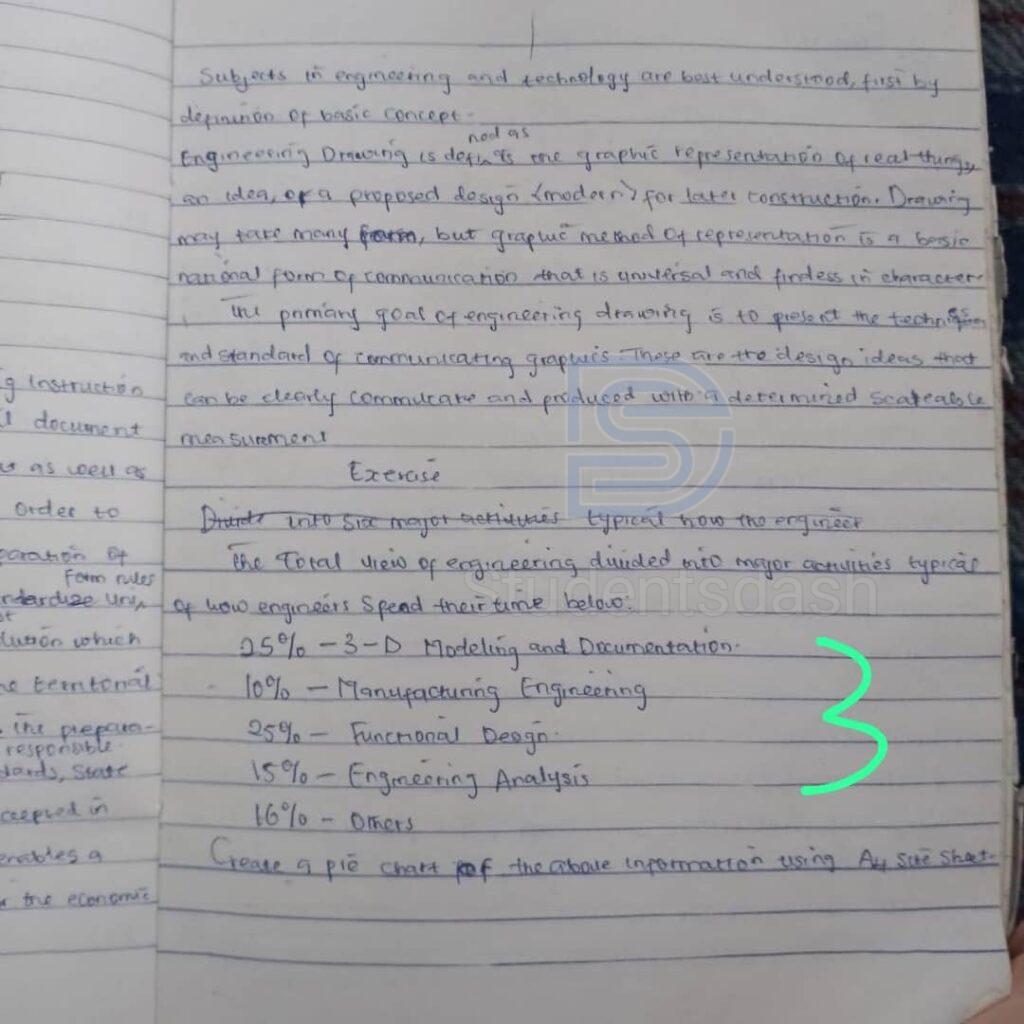 Subjects in engineering and technology are best understood, first by
definition of basic concept.
ned as
Engineering Drawing is the graphic representation of real things,
an idea, or a proposed design <modern> for later construction. Drawing
may take many form, but graphic method of representation is a basic
national form of communication that is universal and in character
The primary goal of engineering drawing is to present the
and standard of communicating graphics. These are the design ideas that
can be clearly and produced with a determined
measurement
Exercise
into six major activities typical how the engineer
The Total view of engineering divided into major activities typical
of how engineers spend their time below:
25% - 3-D Modeling and Documentation.
10% - Manufacturing Engineering
25% - Functional Design.
15% - Engineering Analysis
16% - Others
Create a pie chart of the above information using A4 size Sheet.
g instruction
document
as well as
order to
of
Form rules
which
territorial
the
responsible
State
in
a
the economic
Studentsdash